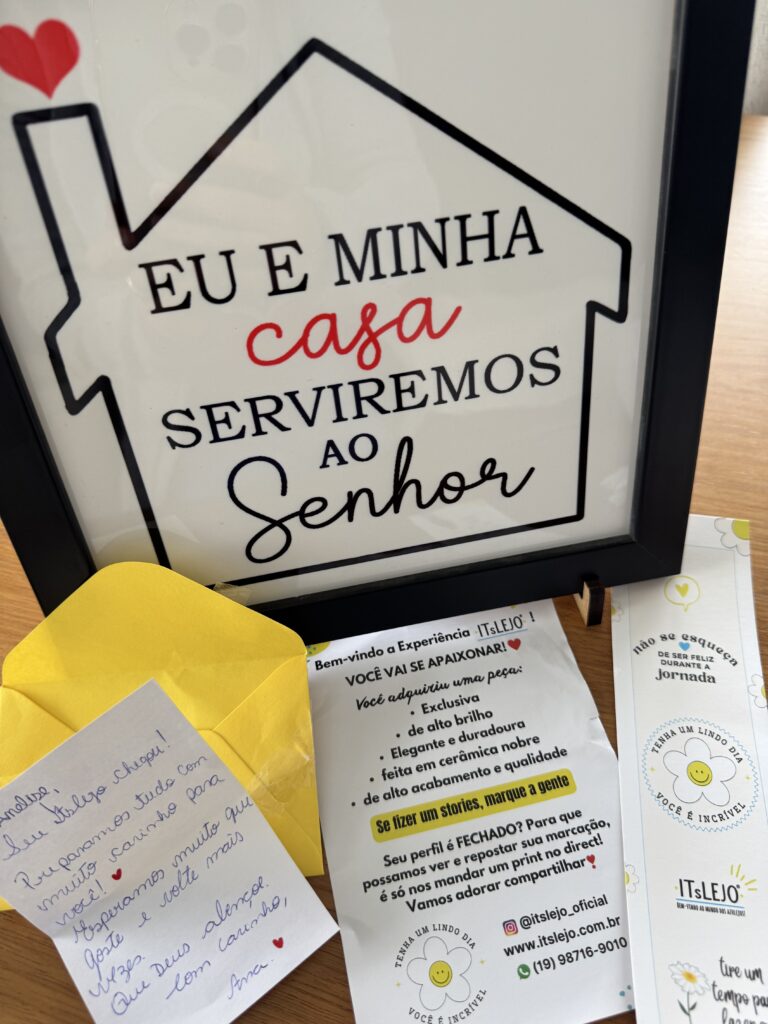 EU E MINHA
casa
SERVIREMOS
AO
Senhor
Seu Itslejo chegou!
Preparamos tudo com
muito carinho para
você!
Esperamos muito que
goste e volte mais
vezes.
Que Deus abençoe.
Com carinho,
Ana.
Bem-vindo a Experiência ITsLEJO !
VOCÊ VAI SE APAIXONAR!
Você adquiriu uma peça:
• Exclusiva
• de alto brilho
• Elegante e duradoura
• feita em cerâmica nobre
• de alto acabamento e qualidade
Se fizer um stories, marque a gente
Seu perfil é FECHADO? Para que
possamos ver e repostar sua marcação,
é só nos mandar um print no direct!
Vamos adorar compartilhar
@itslejo_oficial
www.itslejo.com.br
(19) 98716-9010
TENHA UM LINDO DIA
VOCÊ É INCRÍVEL
não se esqueça
DE SER FELIZ
DURANTE A
jornada
TENHA UM LINDO DIA
VOCÊ É INCRÍVEL
ITsLEJO
BEM-VINDO AO MUNDO DOS AZULEJOS!
tire um
tempo pa